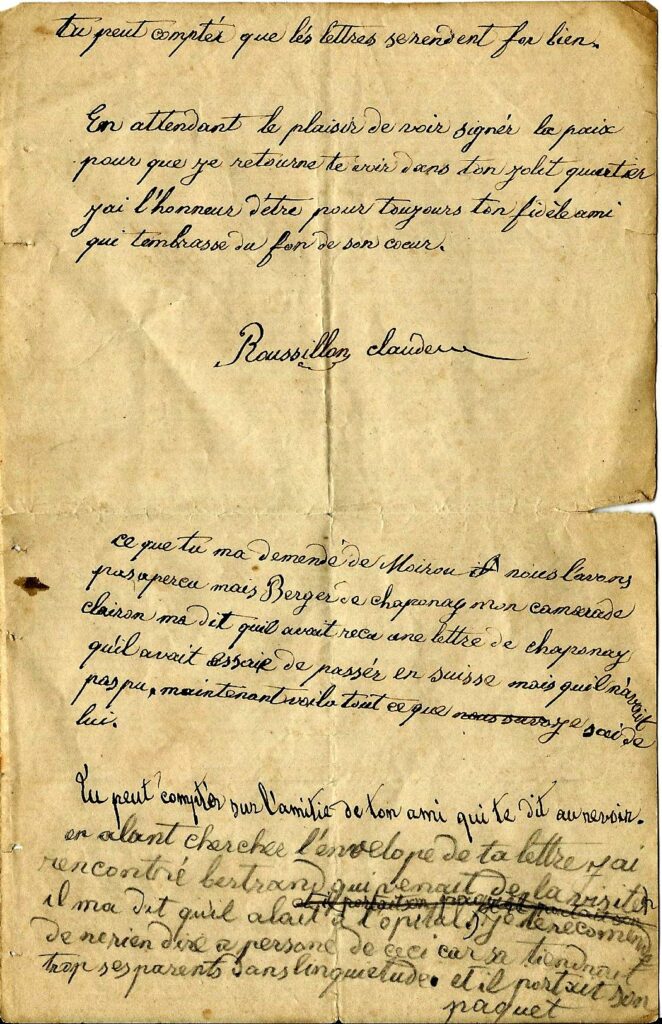 tu peut comptér que lés lettres serendent for bien.
En attendant le plaisir de voir signér la paix
pour que je retourne te voir dans ton jolit quartier
jai l'honneur d'être pour toujours ton fidèle ami
qui tembrasse du fon de son coeur.
Roussillon claude
ce que tu ma demendé de Moirou nous l'avons
pas apercu mais Bergér de chaponay mon camarade
clairon ma dit quil avait recu une lettre de chaponay
qu'il avait essaié de passér en suisse mais quil n'avait
pas pu, maintenant voila tout ce que nous savo je sai de
lui.
Tu peut comptér sur l'amitié de ton ami qui te dit au revoir.
en alant chercher l'envelope de ta lettre jai
rencontré bertrand qui venait de la visite
il ma dit qu'il alait a l'opital, je te recomende
de nerien dire a persone de ceci car sa tiendrait
trop ses parents dans linquietude. et il portait son
paquet